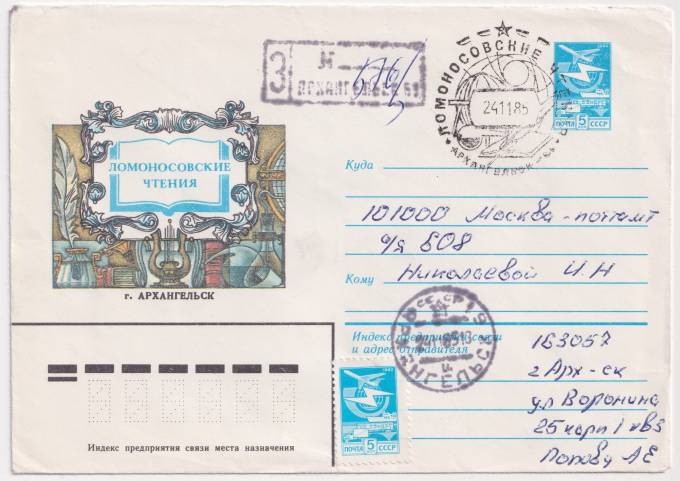 З
АРХАНГЕЛЬСК 61
ЛОМОНОСОВСКИЕ
24.11.85
АРХАНГЕЛЬСК
ПОЧТА 5 СССР
ЛОМОНОСОВСКИЕ
ЧТЕНИЯ
г. АРХАНГЕЛЬСК
Куда
101000 Москва-почтамт
а/я 808
Кому
Николаевой И.Н
СССР
АРХАНГЕЛЬСК
Индекс предприятия связи
и адрес отправителя
163057
г Арх-ск
ул Воронина
25 корп 1 кв 3
Попову АЕ
1982
ПОЧТА 5 СССР
Индекс предприятия связи места назначения